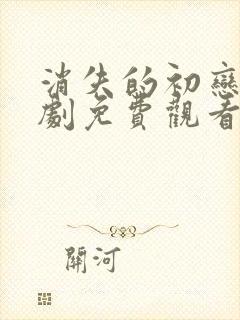 消失的初戀
劇免費觀看
關河